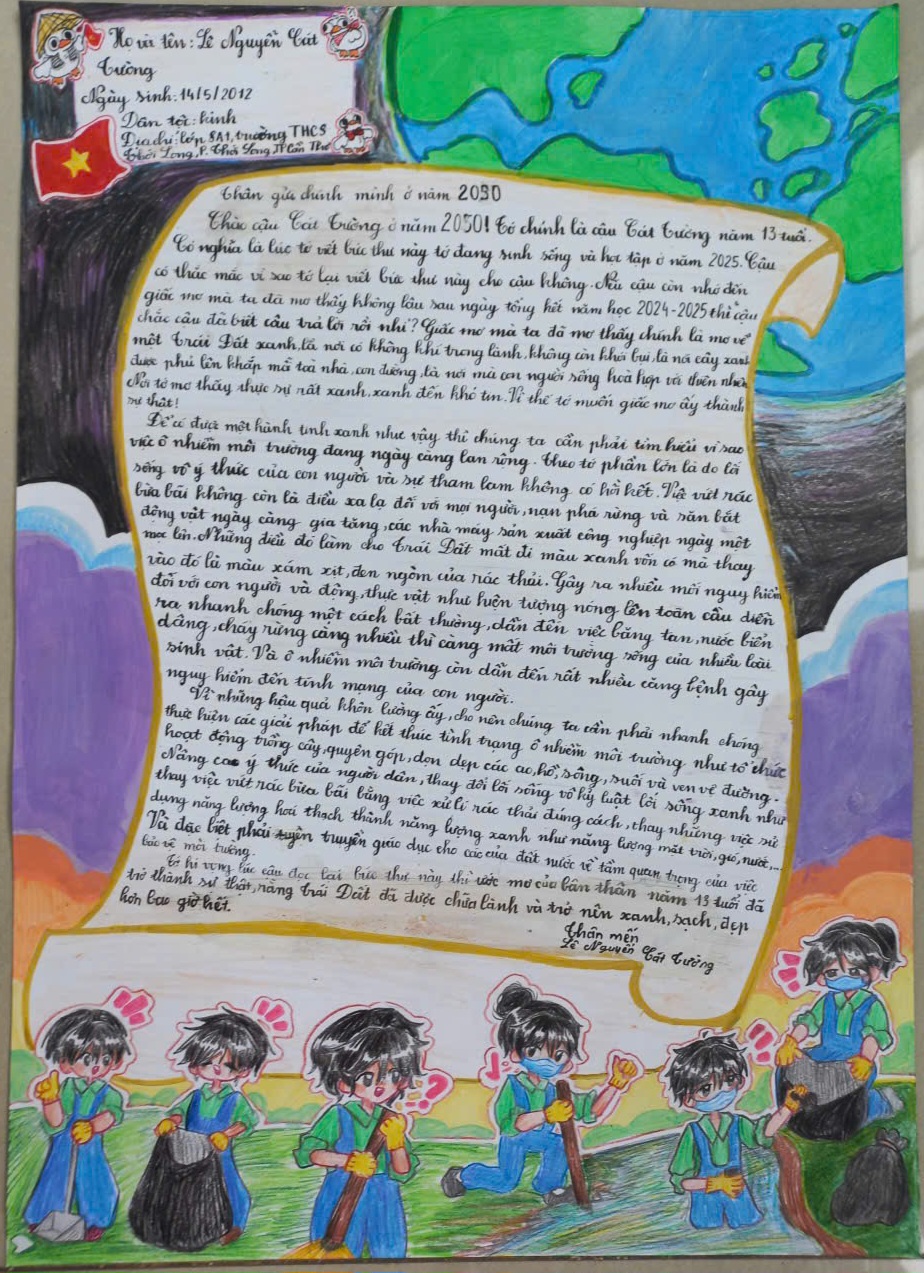 Họ và tên: Lê Nguyễn Cát
Tường
Ngày sinh: 14/5/2012
Dân tộc: kinh
Địa chỉ: lớp 8A1, trường THCS
Thới Long, P. Thới Long, TP Cần Thơ
Thân gửi chính mình ở năm 2050
Chào cậu Cát Tường ở năm 2050! Tớ chính là cậu Cát Tường năm 13 tuổi.
Có nghĩa là lúc tớ viết bức thư này tớ đang sinh sống và học tập ở năm 2025. Cậu
có thắc mắc vì sao tớ lại viết bức thư này cho cậu không. Nếu cậu còn nhớ đến
giấc mơ mà ta đã mơ thấy không lâu sau ngày tổng kết năm học 2024-2025 thì cậu
chắc cậu đã biết câu trả lời rồi nhỉ? Giấc mơ mà ta đã mơ thấy chính là mơ về
một Trái Đất xanh, là nơi có không khí trong lành, không còn khói bụi, là nơi cây xanh
được phủ lên khắp mã toà nhà, con đường, là nơi mà con người sống hoà hợp với thiên nhiên
Nơi tớ mơ thấy thực sự rất xanh, xanh đến khó tin. Vì thế tớ muốn giấc mơ ấy thành
sự thật!
Để có được một hành tinh xanh như vậy thì chúng ta cần phải tìm hiểu vì sao
việc ô nhiễm môi trường đang ngày càng lan rộng. Theo tớ phần lớn là do lối
sống vô ý thức của con người và sự tham lam không có hồi kết. Việc vứt rác
bừa bãi không còn là điều xa lạ đối với mọi người, nạn phá rừng và săn bắt
động vật ngày càng gia tăng, các nhà máy sản xuất công nghiệp ngày một
mọc lên. Những điều đó làm cho Trái Đất mất đi màu xanh vốn có mà thay
vào đó là màu xám xịt, đen ngòm của rác thải. Gây ra nhiều mối nguy hiểm
đối với con người và động, thực vật như hiện tượng nóng lên toàn cầu diễn
ra nhanh chóng một cách bất thường, dẫn đến việc băng tan, nước biển
dâng, cháy rừng càng nhiều thì càng mất môi trường sống của nhiều loài
sinh vật. Và ô nhiễm môi trường còn dẫn đến rất nhiều căng bệnh gây
nguy hiểm đến tính mạng của con người.
Vì những hậu quả khôn lường ấy, cho nên chúng ta cần phải nhanh chóng
thực hiện các giải pháp để kết thúc tình trạng ô nhiễm môi trường như tổ chức
hoạt động trồng cây, quyên góp, dọn dẹp các ao, hồ, sông, suối và ven vẽ đường.
Nâng cao ý thức của người dân, thay đổi lối sống vô kỷ luật lối sống xanh như
thay việc vứt rác bừa bãi bằng việc xử lí rác thải đúng cách, thay những việc sử
dụng năng lượng hoá thạch thành năng lượng xanh như năng lượng mặt trời, gió, nước,...
Và đặc biệt phải tuyên truyền giáo dục cho các của đất nước về tầm quan trọng của việc
bảo vệ môi trường.
Tớ hi vọng lúc cậu đọc lại bức thư này thì ước mơ của bản thân năm 13 tuổi đã
trở thành sự thật, rằng Trái Đất đã được chữa lành và trở nên xanh, sạch, đẹp
hơn bao giờ hết.
Thân mến
Lê Nguyễn Cát Tường